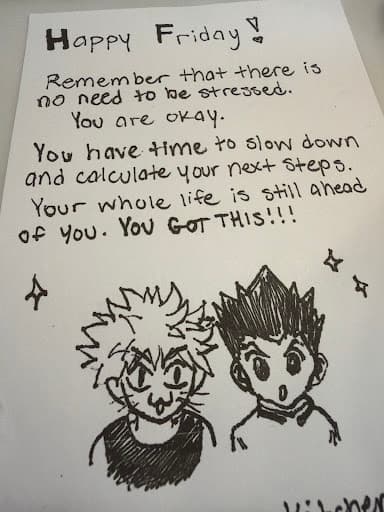 Happy Friday!
Remember that there is
no need to be stressed.
You are okay.
You have time to slow down
and calculate your next steps.
Your whole life is still ahead
of you. YOU GOT THIS!!!